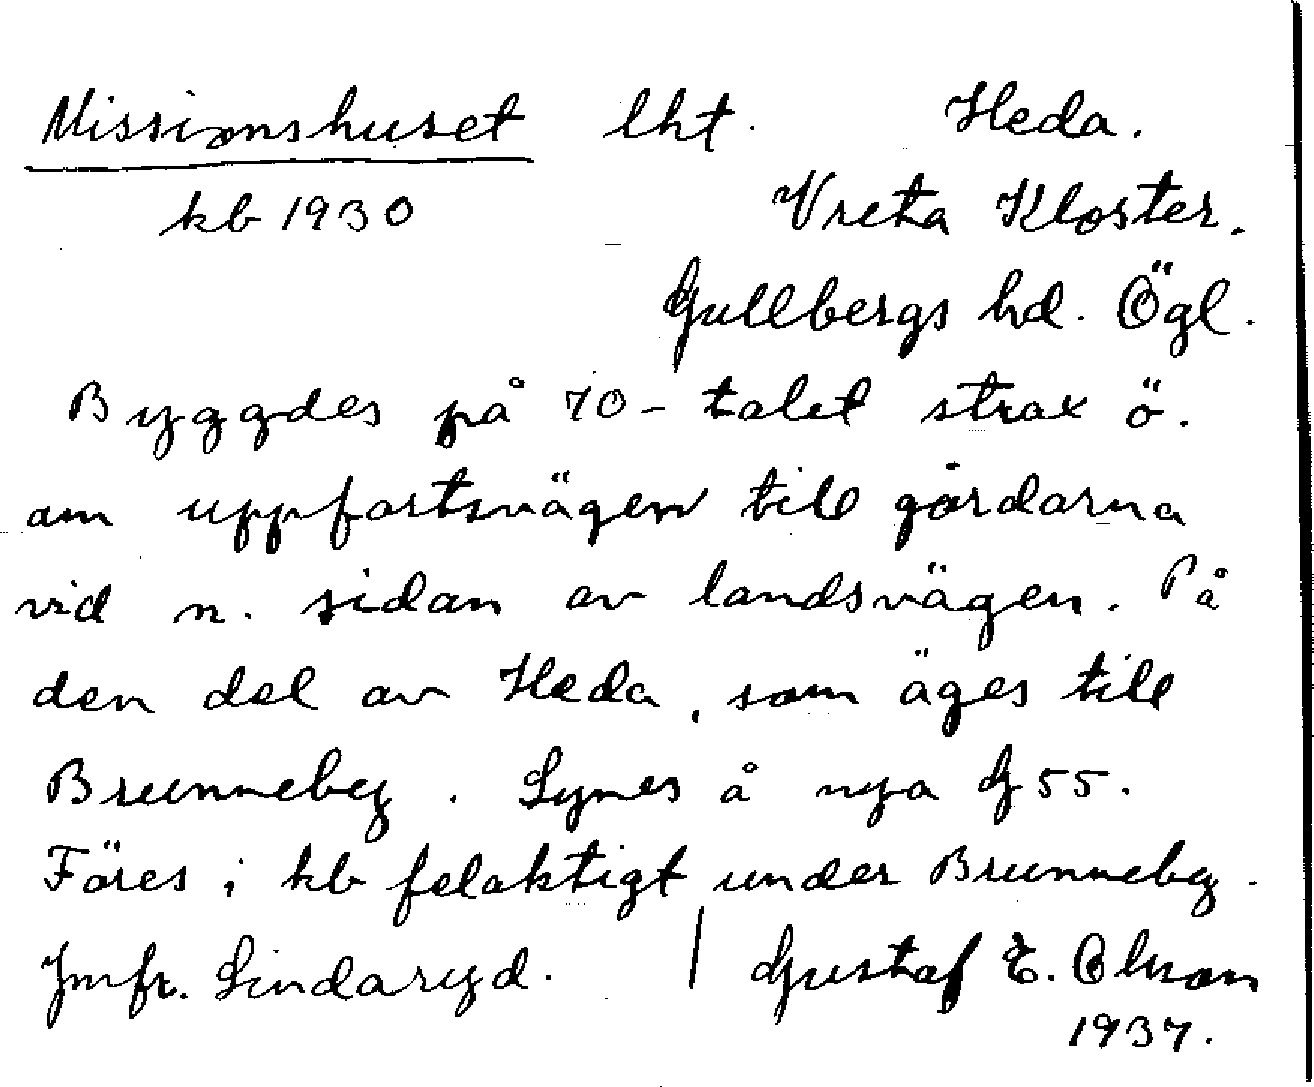 Missionshuset lht. Heda.
kb 1930 Vreta Kloster.
Gullbergs hd. Ögl.
Byggdes på 70-talet strax ö.
om uppfartsvägen till gårdarna
vid n. sidan av landsvägen. På
den del av Heda, som äges till
Brunneby. Synes å nya G 55.
Föres i kb felaktigt under Brunneby.
Jmfr. Lindaryd. / Gustaf E. Olsson
1937.